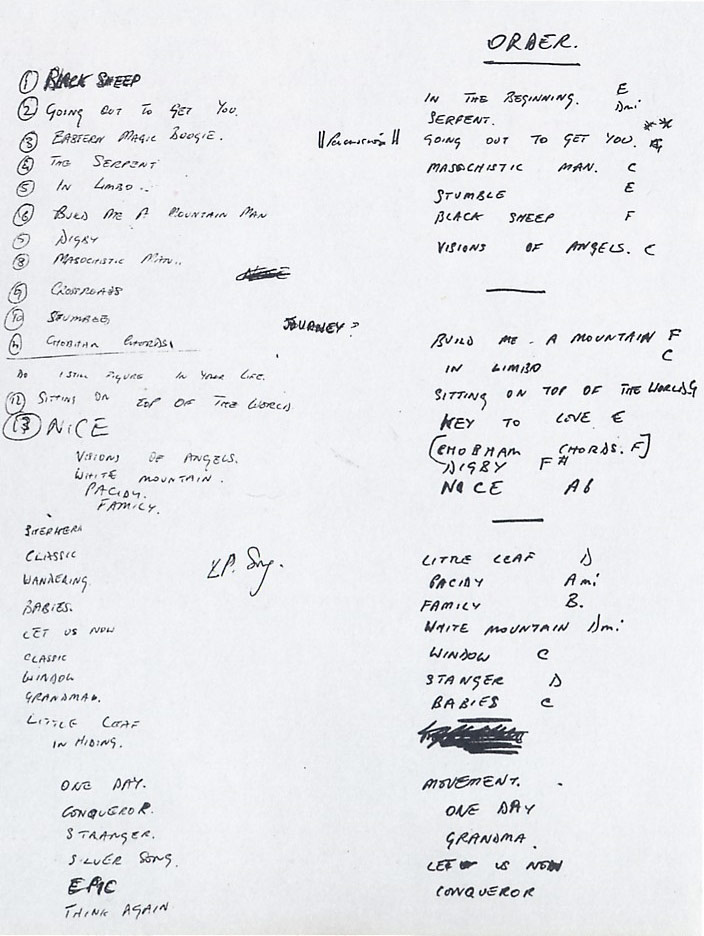 ① BLACK SHEEP
② GOING OUT TO GET YOU.
③ EASTERN MAGIC BOOGIE.
④ THE SERPENT
⑤ IN LIMBO..
⑥ BUILD ME A MOUNTAIN MAN
⑦ DIGBY
⑧ MASOCHISTIC MAN..
⑨ CROSSROADS
⑩ STUMBLE
⑪ CHOBHAM CHORDS.
DO I STILL FIGURE IN YOUR LIFE.
⑫ SITTING ON TOP OF THE WORLD
⑬ NICE
VISIONS OF ANGELS.
WHITE MOUNTAIN.
PACIDY.
FAMILY.
SHEPHERD
CLASSIC
WANDERING.
BABIES.
LET US NOW
CLASSIC
WINDOW
GRANDMA.
LITTLE LEAF
IN HIDING.
ONE DAY.
CONQUEROR.
STRANGER.
SILVER SONG.
EPIC
THINK AGAIN
JOURNEY?
L.P. Song.
ORDER.
IN THE BEGINNING. E
SERPENT. Dmi
GOING OUT TO GET YOU. **
MASOCHISTIC MAN. C
STUMBLE E
BLACK SHEEP F
VISIONS OF ANGELS. C
BUILD ME A MOUNTAIN F
IN LIMBO C
SITTING ON TOP OF THE WORLD G
KEY TO LOVE E
[CHOBHAM CHORDS. F]
DIGBY F#
NICE Ab
LITTLE LEAF D
PACIDY Ami
FAMILY B.
WHITE MOUNTAIN Dmi
WINDOW C
STANGER D
BABIES C
MOVEMENT.
ONE DAY
GRANDMA.
LET US NOW
CONQUEROR